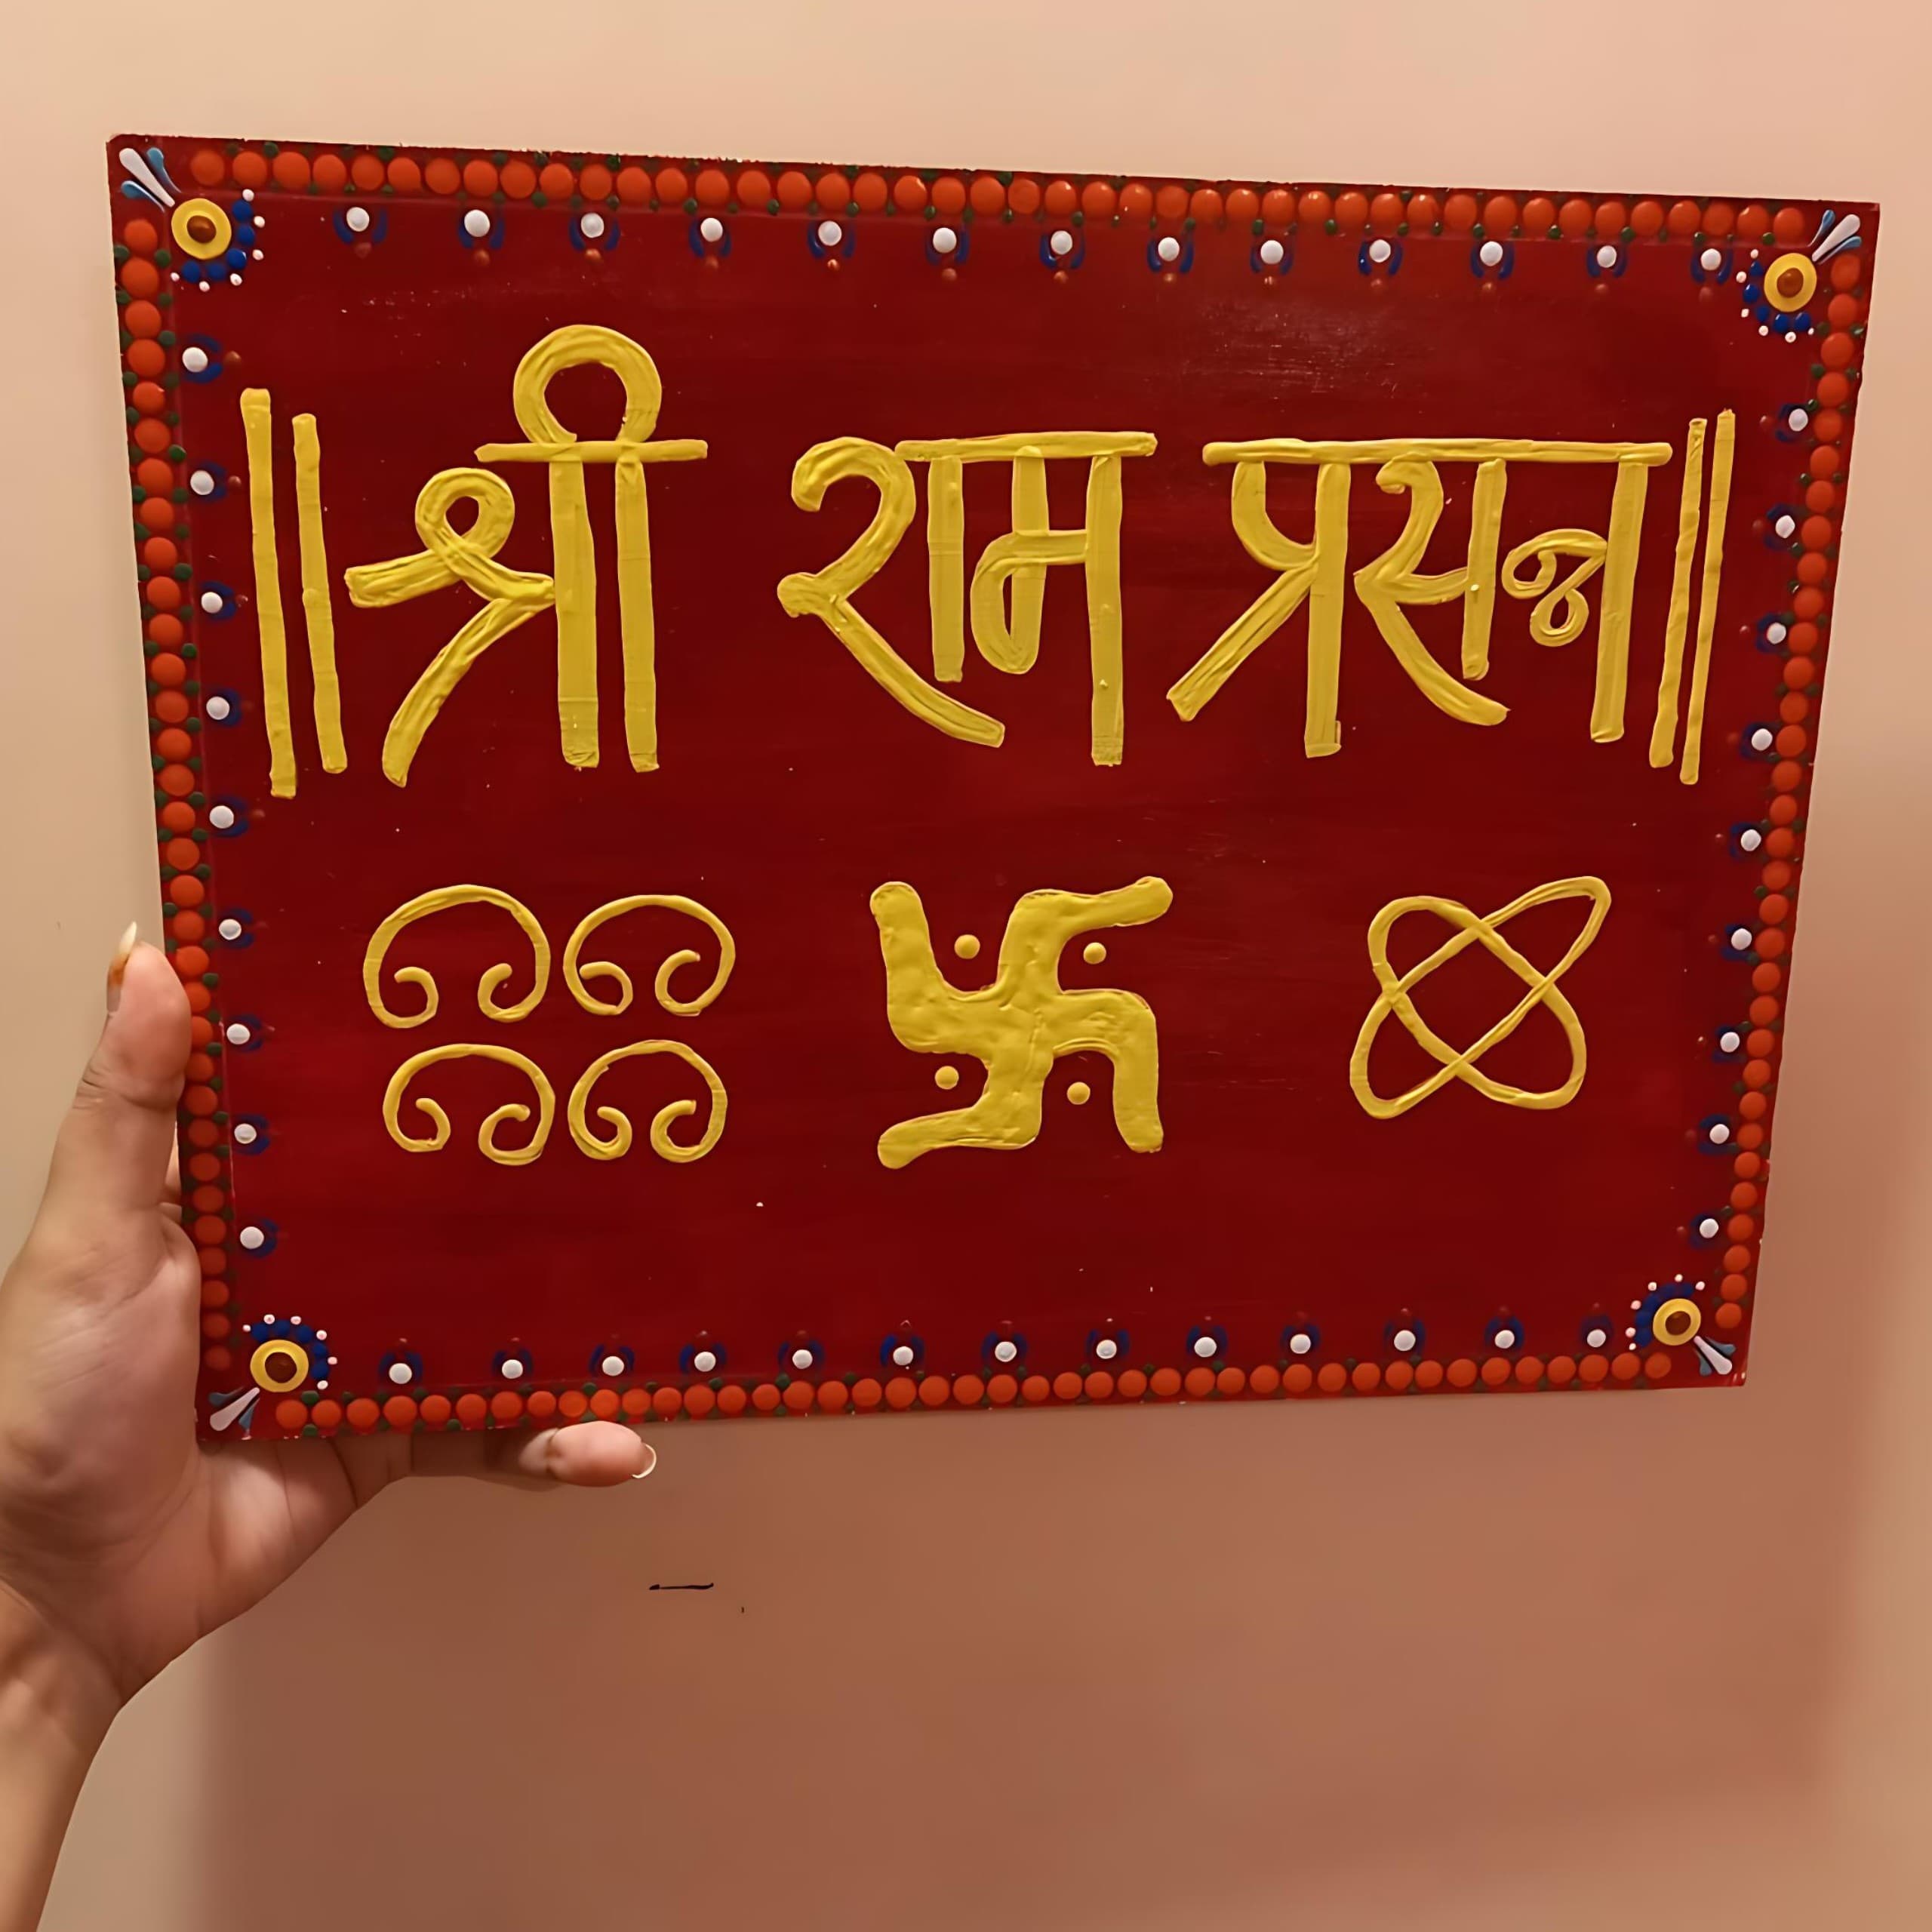 ॥ श्री राम प्रसन्न ॥